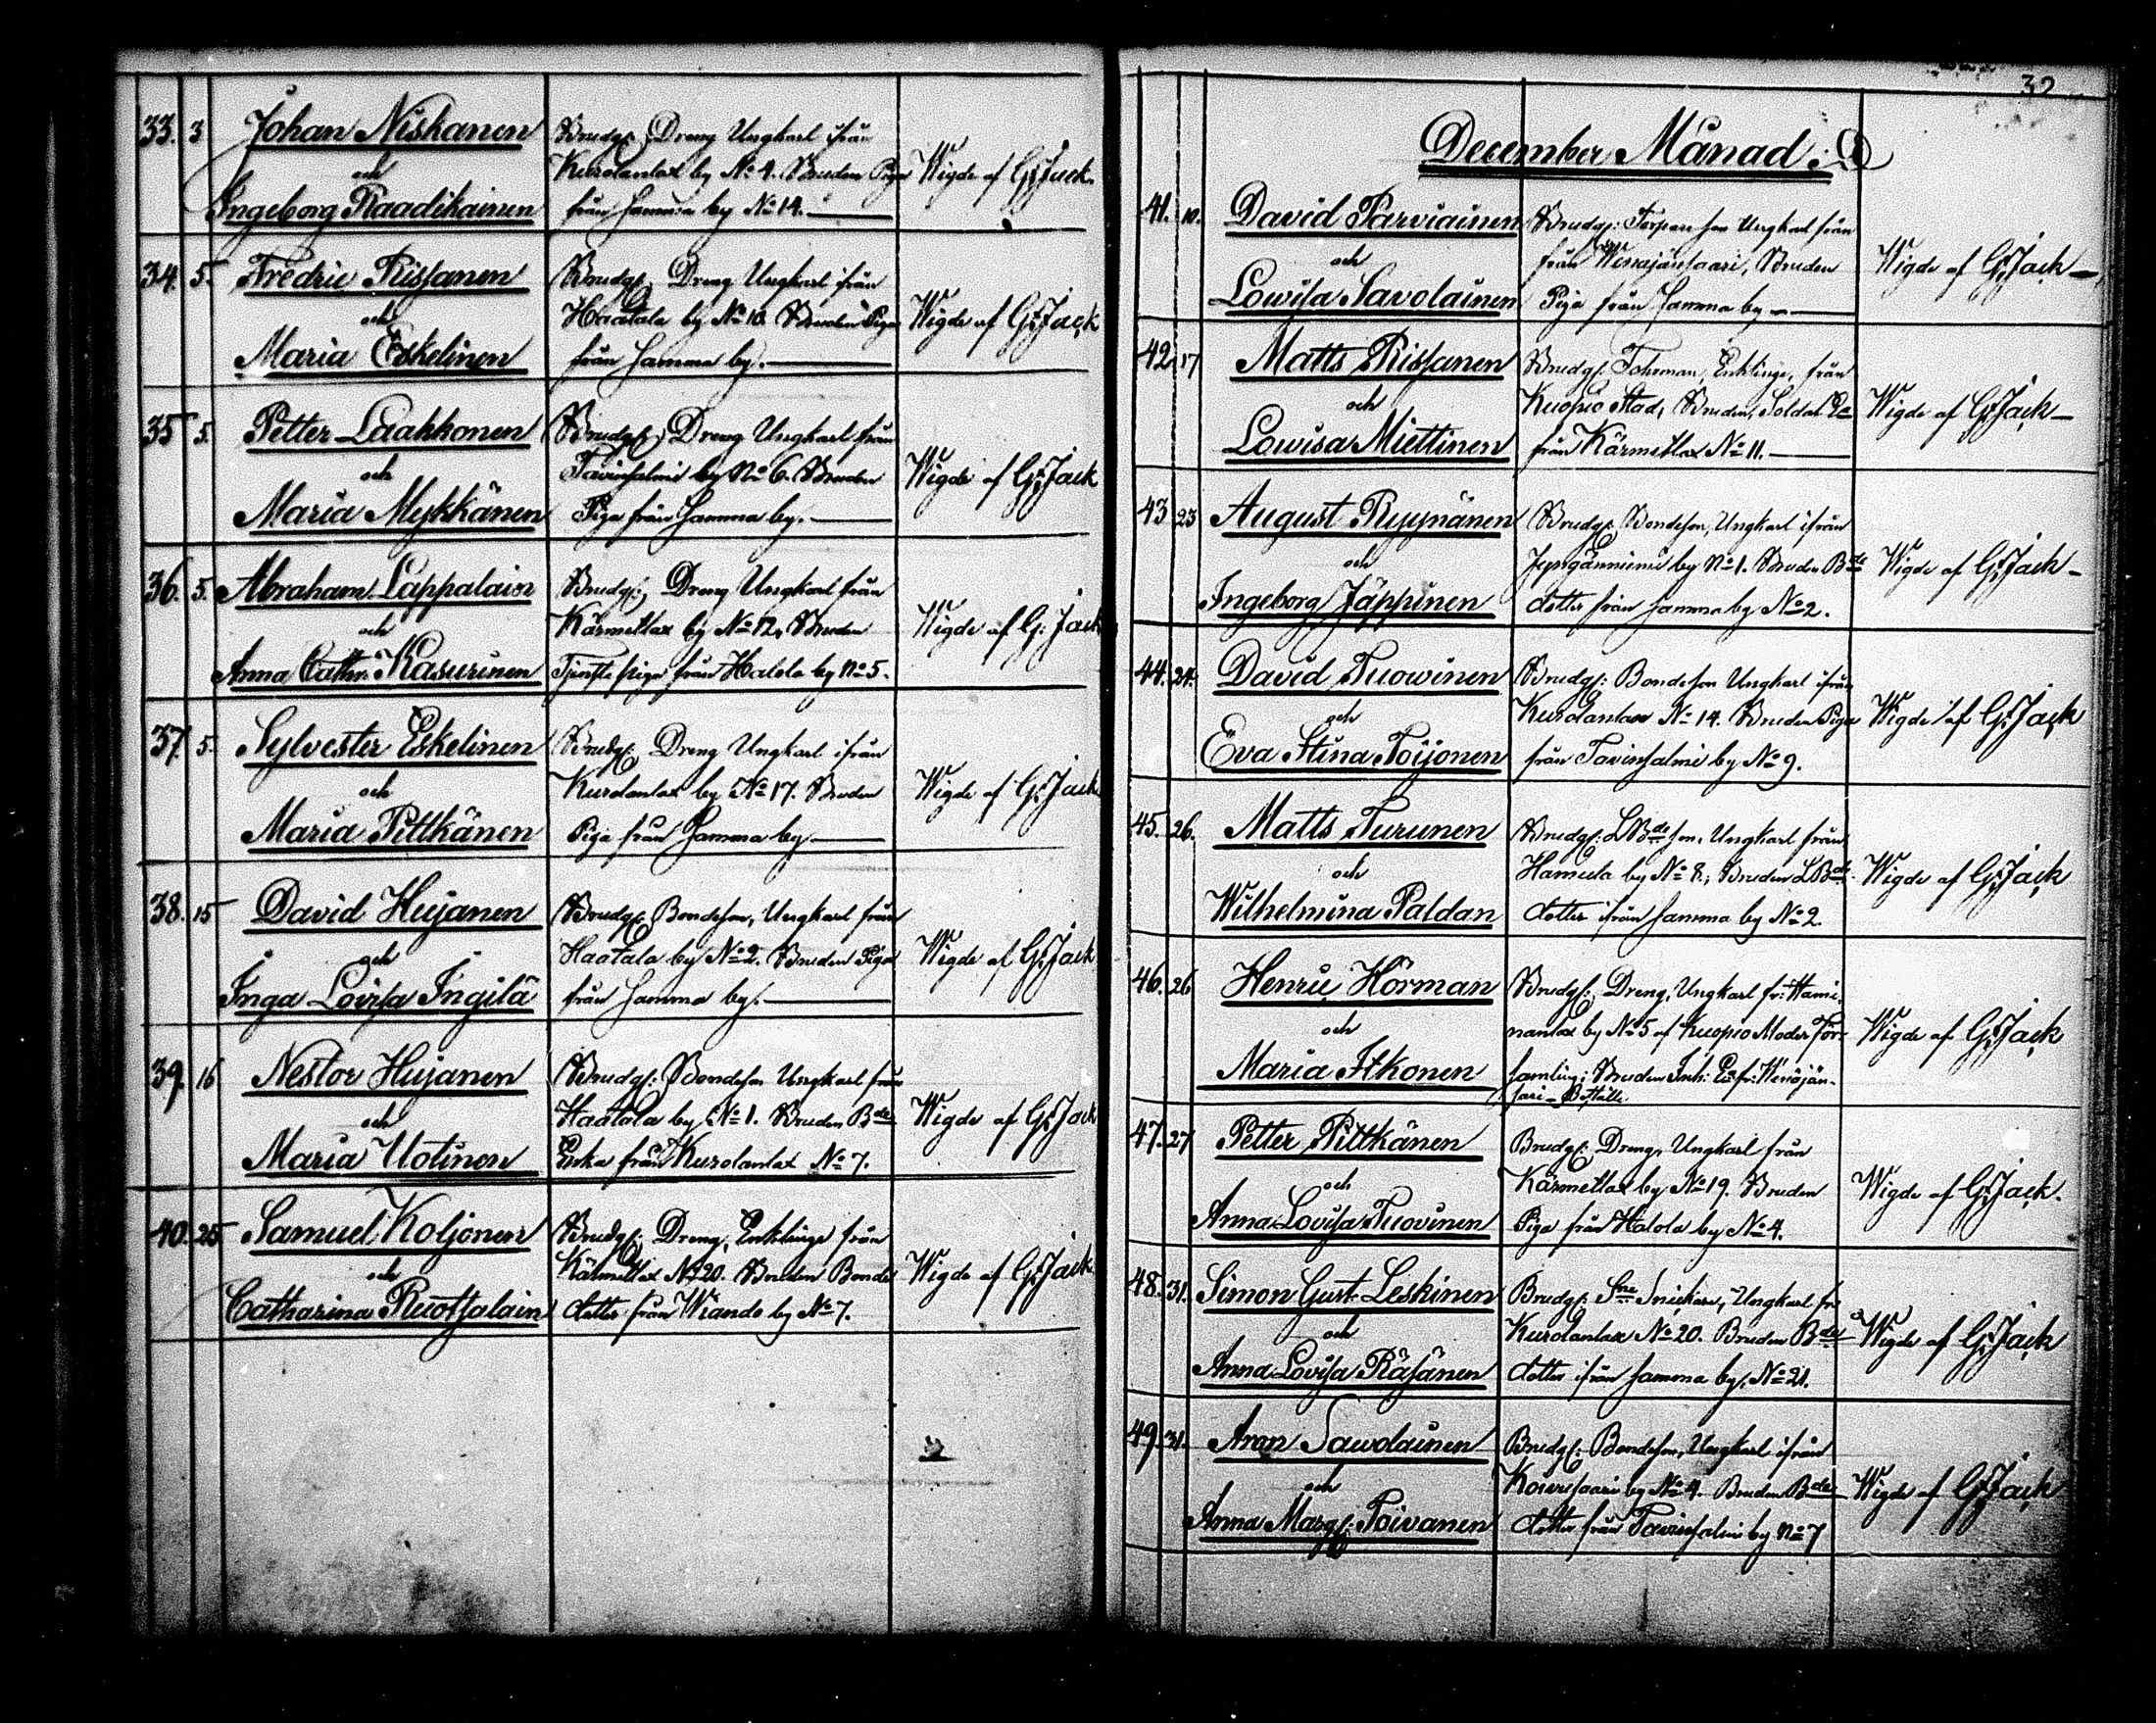 33. 3 Johan Niskanen Brudg: Dreng Ungkarl ifrån
och Kurolanlax by No 4. Bruden Piga Wigde af G: Jack.
Ingeborg Raadikainen från samma by No 14.
34. 5. Fredric Rissanen Brudg: Dreng Ungkarl ifrån
och Haatala by No 10. Bruden Piga Wigde af G: Jack
Maria Eskelinen från samma by.
35 5. Petter Laakkonen Brudg: Dreng Ungkarl från
och Tavinsalmi by No 6. Bruden Wigde af G: Jack
Maria Mykkänen Piga från samma by.
36. 5. Abraham Lappalain Brudg: Dreng Ungkarl från
och Kärmetlax by No 12, Bruden Wigde af G: Jack
Anna Cathr: Kasurinen Tjenste piga från Halola by No 5.
37. 5. Sylvester Eskelinen Brudg: Dreng Ungkarl ifrån
och Kurolanlax by No 17. Bruden Wigde af G: Jack
Maria Pittkänen Piga från samma by
38. 15 David Hujanen Brudg: Bondeson, Ungkarl från
och Haatala by No 2. Bruden Piga Wigde af G: Jack
Inga Lovisa Ingilä från samma by.
39. 16 Nestor Hujanen Brudg: Bondeson Ungkarl från
och Haatala by No 1. Bruden Bde Wigde af G: Jack
Maria Uotinen Enka från Kurolanlax No 7.
40. 25 Samuel Koljonen Brudg: Dreng, Enklinge från
och Kärmetlax No 20. Bruden Bonde Wigde af G: Jack
Catharina Ruottsalain dotter från Wiande by No 7.
32
December Månad:
41. 10. David Parviainen Brudg: Torpare son Ungkarl från
och från Wenäjänsaari, Bruden Wigde af G: Jack
Lowisa Savolainen Piga från samma by
42 17 Matts Rissanen Brudg: Forman, Enklinge, från
och Kuopio Stad, Bruden, Soldat Ea Wigde af G: Jack
Lowisa Miettinen från Kärmetlax No 11.
43 23 August Ryynänen Brudg: Bondeson, Ungkarl ifrån
och by No 1. Bruden Bde Wigde af G: Jack
Ingeborg Jäppinen dotter från samma by No 2.
44. 24. David Tuowinen Brudg: Bondeson Ungkarl ifrån
och Kurolanlax No 14. Bruden Piga Wigde af G: Jack
Eva Stina Toijonen från Tavinsalmi by No 9.
45. 26. Matts Turunen Brudg: LBde son, Ungkarl från
och Hamula by No 8, Bruden LBde Wigde af G: Jack
Wilhelmina Paldan dotter ifrån samma by No 2.
46. 26 Henric Hörman Brudg: Dreng, Ungkarl fr: Hami-
och nanlax by No 5 af Kuopio Moder För- Wigde af G: Jack
Maria Itkonen samling; Bruden Inh: Ea fr: Wenäjän-
sari
47. 27 Petter Pittkänen Brudg: Dreng, Ungkarl från
och Kärmetlax by No 19. Bruden Wigde af G: Jack.
Anna Lovisa Tuovinen Piga från Halola by No 4.
48. 31. Simon Gust. Leskinen Brudg: Sne Snickare, Ungkarl fr
och Kurolanlax No 20. Bruden Bde Wigde af G: Jack
Anna Lovisa Räsänen dotter ifrån samma by, No 21.
49. 31. Aron Sawolainen Brudg: Bondeson, Ungkarl ifrån
och by No 4. Bruden Bde Wigde af G: Jack
Anna Marg: Toivanen dotter från Tavinsalmi by No 7